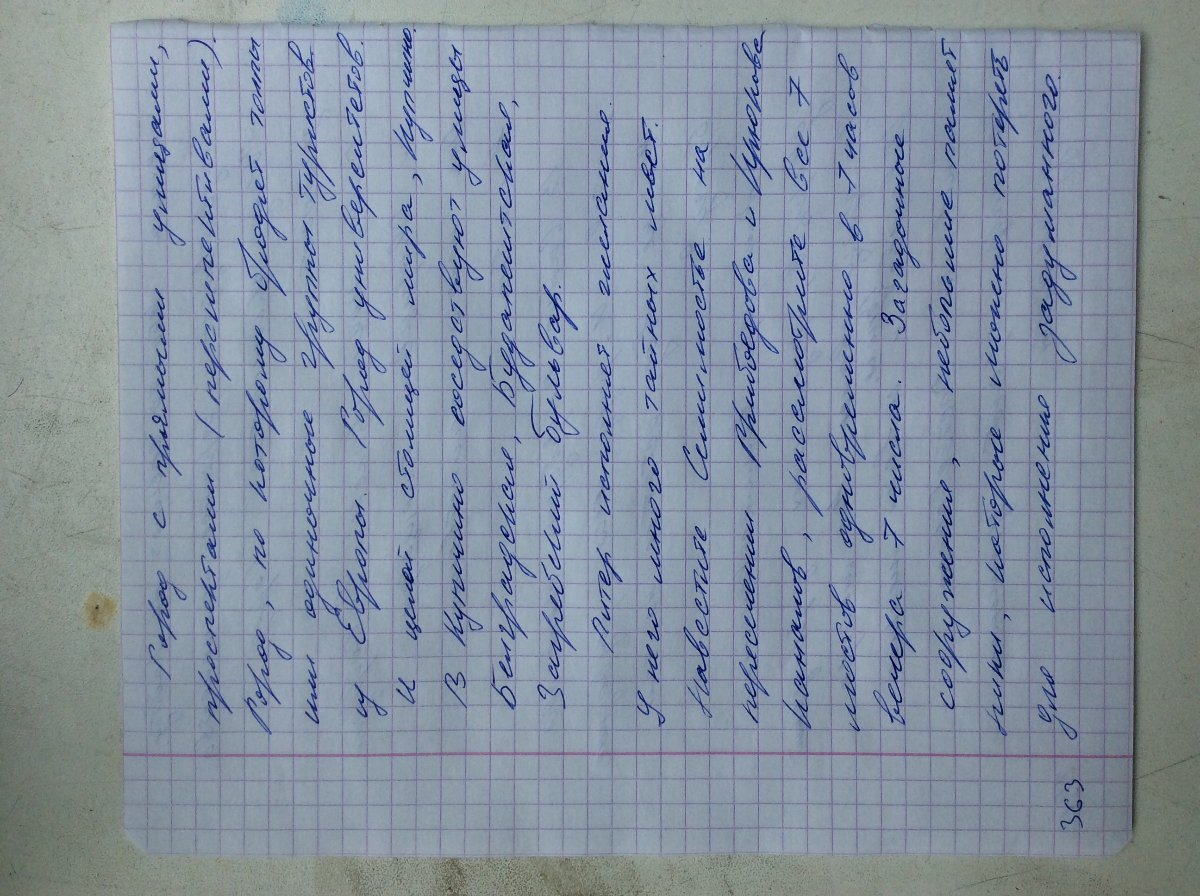 Город с прямыми улицами,
проспектами (перспективами).
Город, по которому бродят толпы
или одиночные группы туристов
из Европы. Город университетов.
И целой столицей мира, Купчино.
В Купчино соседствуют улицы
Белградская, Будапештская,
Загребский бульвар.
Питер исполняет желания.
У него много тайных мест.
Навестите Семимостье на
пересечении Грибоедова и Крюкова
каналов, рассмотрите все 7
мостов одновременно в 7 часов
вечера 7 числа. Загадочные
сооружения, небольшие памят
ники, которые можно потереть
для исполнения задуманного.
363